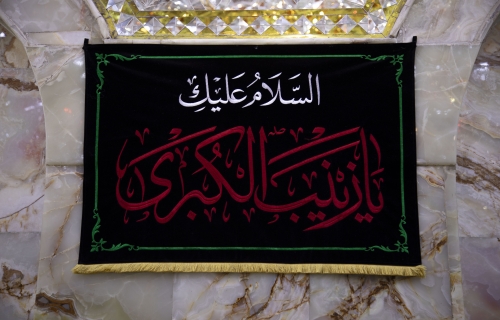 السَّلَامُ عَلَيْكِ
يَا زَيْنَبَ الْكُبْرَىٰ